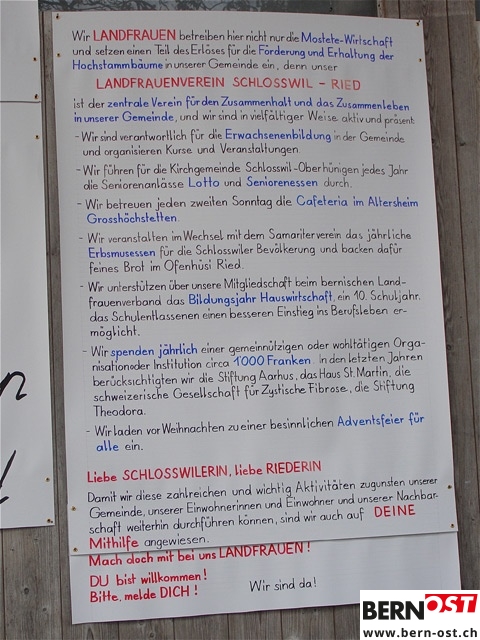 Wir LANDFRAUEN betreiben hier nicht nur die Mostete-Wirtschaft
und setzen einen Teil des Erlöses für die Förderung und Erhaltung der
Hochstammbäume in unserer Gemeinde ein, denn unser
LANDFRAUENVEREIN SCHLOSSWIL - RIED
ist der zentrale Verein für den Zusammenhalt und das Zusammenleben
in unserer Gemeinde, und wir sind in vielfältiger Weise aktiv und präsent:
- Wir sind verantwortlich für die Erwachsenenbildung in der Gemeinde
und organisieren Kurse und Veranstaltungen.
- Wir führen für die Kirchgemeinde Schlosswil-Oberhünigen jedes Jahr
die Seniorenanlässe Lotto und Seniorenessen durch.
- Wir betreuen jeden zweiten Sonntag die Cafeteria im Altersheim
Grosshöchstetten.
- Wir veranstalten im Wechsel mit dem Samariterverein das jährliche
Erbsmusessen für die Schlosswiler Bevölkerung und backen dafür
feines Brot im Ofenhüsi Ried.
- Wir unterstützen über unsere Mitgliedschaft beim bernischen Land-
frauenverband das Bildungsjahr Hauswirtschaft, ein 10. Schuljahr,
das Schulentlassenen einen besseren Einstieg ins Berufsleben er-
möglicht.
- Wir spenden jährlich einer gemeinnützigen oder wohltätigen Orga-
nisation oder Institution circa 1000 Franken. In den letzten Jahren
berücksichtigten wir die Stiftung Aarhus, das Haus St. Martin, die
schweizerische Gesellschaft für Zystische Fibrose, die Stiftung
Theodora.
- Wir laden vor Weihnachten zu einer besinnlichen Adventsfeier für
alle ein.
Liebe SCHLOSSWILERIN, liebe RIEDERIN
Damit wir diese zahlreichen und wichtig Aktivitäten zugunsten unserer
Gemeinde, unserer Einwohnerinnen und Einwohner und unserer Nachbar-
schaft weiterhin durchführen können, sind wir auch auf DEINE
Mithilfe angewiesen.
Mach doch mit bei uns LANDFRAUEN!
DU bist willkommen!
Bitte, melde DICH! Wir sind da!
BERNOST
www.bern-ost.ch